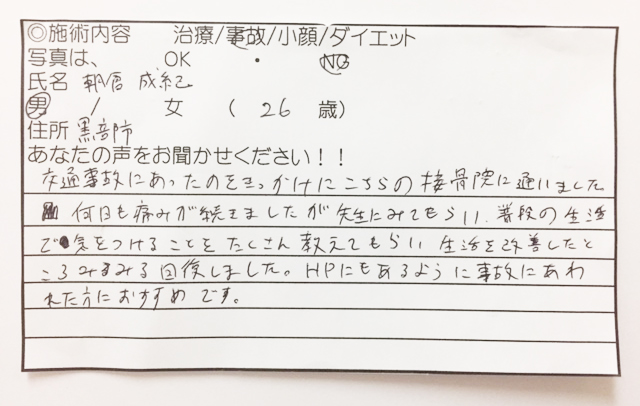 ◎施術内容 治療/事故/小顔/ダイエット
写真は、 OK ・ NG
氏名 朝倉 成紀
男 / 女 ( 26 歳)
住所 黒部市
あなたの声をお聞かせください！！
交通事故にあったのをきっかけにこちらの接骨院に通いました
何日も痛みが続きましたが先生にみてもらい、普段の生活
で気をつけることをたくさん教えてもらい生活を改善したと
ころみるみる回復しました。HPにもあるように事故にあわ
れた方におすすめです。